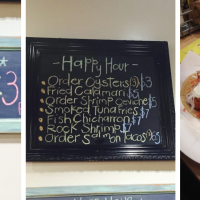 Happy Hour
Order Oysters (3) $3
Fried Calamari $5
Order Shrimp Ceviche $5
Smoked Tuna Fries $7
Fish Chicharron $7
Rock Shrimp $7
Order Salmon Tacos
3